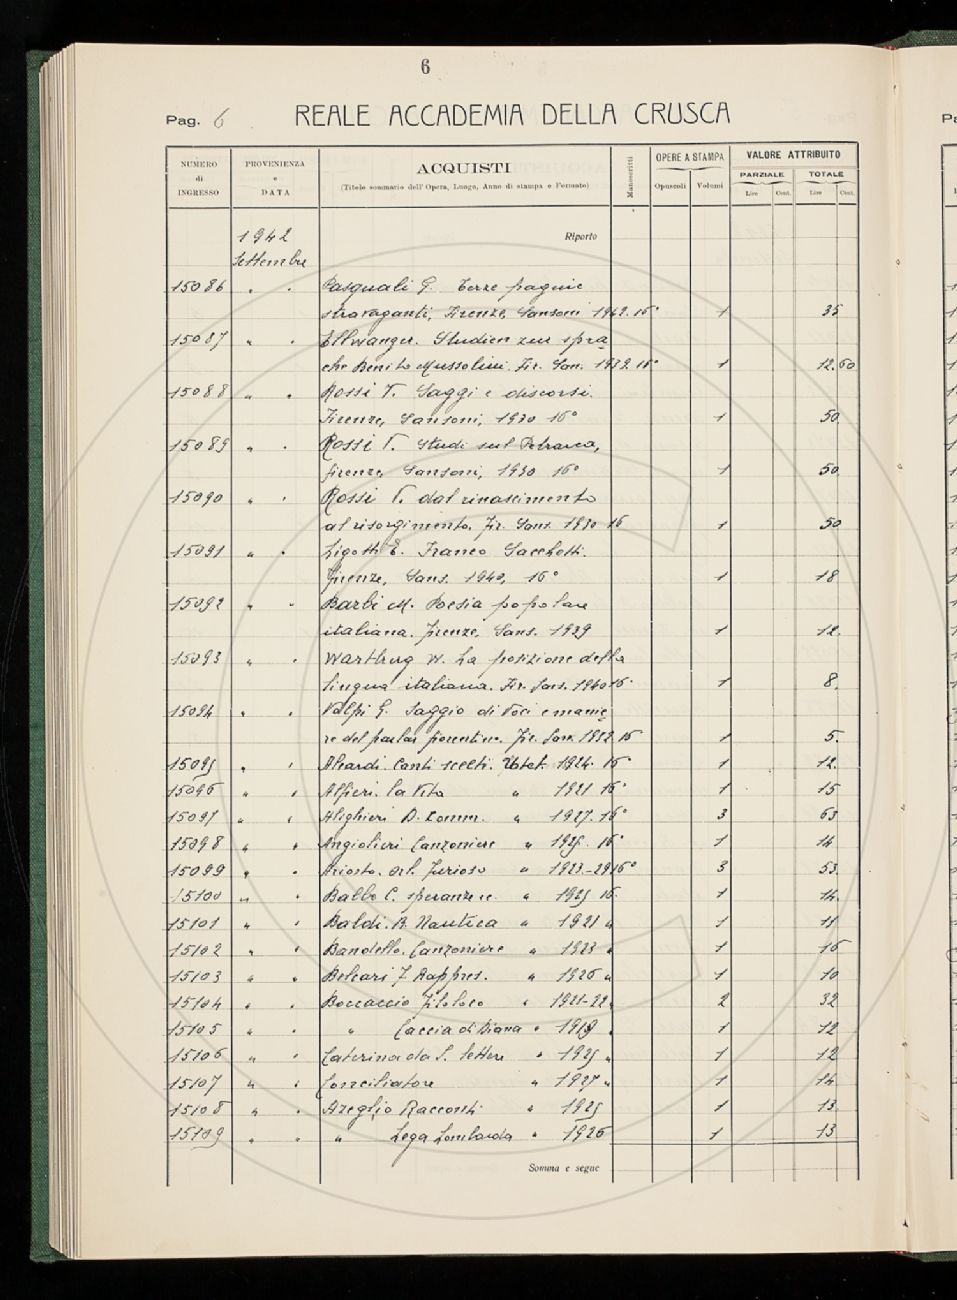 6
Pag. 6 REALE ACCADEMIA DELLA CRUSCA
NUMERO di INGRESSO PROVENIENZA e DATA ACQUISTI (Titolo sommario dell'Opera, Luogo, Anno di stampa e Formato) Manoscritti OPERE A STAMPA Opuscoli Volumi VALORE ATTRIBUITO PARZIALE Lire Cent. TOTALE Lire Cent.
1942 Riporto
Settembre
15086 " " Pasquali G. Terze pagine
stravaganti, Firenze, Sansoni 1942. 16° 1 35
15087 " " Ellwanger. Studien zur spra
che Benito Mussolini. Fir. San. 1939. 16° 1 12.60
15088 " " Rossi V. Saggi e discorsi.
Firenze, Sansoni, 1930 16° 1 50
15089 " " Rossi V. Studi sul Petrarca,
firenze, Sansoni, 1930 16° 1 50
15090 " " Rossi V. dal rinascimento
al risorgimento. Fir. Sans. 1930 16 1 50
15091 " " Ligotti E. Franco Sacchetti.
Firenze, Sans. 1940, 16° 1 18
15092 " " Barbi M. Poesia popolare
italiana. Firenze, Sans. 1939 1 12.
15093 " " Wartburg W. La posizione della
lingua italiana. Fir. Sans. 1940 16. 1 8.
15094 " " Volpi G. Saggio di Voci e manie
re del parlar fiorentino. Fir. San. 1932 16 1 5.
15095 " " Aleardi. Canti scelti. 1924. 16° 1 12.
15096 " " Alfieri. la Vita " 1921 16° 1 15
15097 " " Alighieri D. Comm. " 1927. 16° 3 63
15098 " " Angiolieri Canzoniere " 1925. 16° 1 14
15099 " " Ariosto. Orl. Furioso " 1923-29 16° 3 53.
15100 " " Balbo C. speranze ec. " 1925 16. 1 14.
15101 " " Baldi. B. Nautica " 1921 " 1 11
15102 " " Bandello. Canzoniere " 1923 " 1 16
15103 " " Belcari F. Rappres. " 1926 " 1 10
15104 " " Boccaccio Filoloco " 1921-22 " 2 32
15105 " " " Caccia di Diana " 1 12
15106 " " Caterina da S. Lettere " 1925 " 1 12
15107 " " Conciliatore " 1927 " 1 14
15108 " " Azeglio Racconti " 1925 1 13
15109 " " " Lega Lombarda " 1926 1 13
Somma e segue